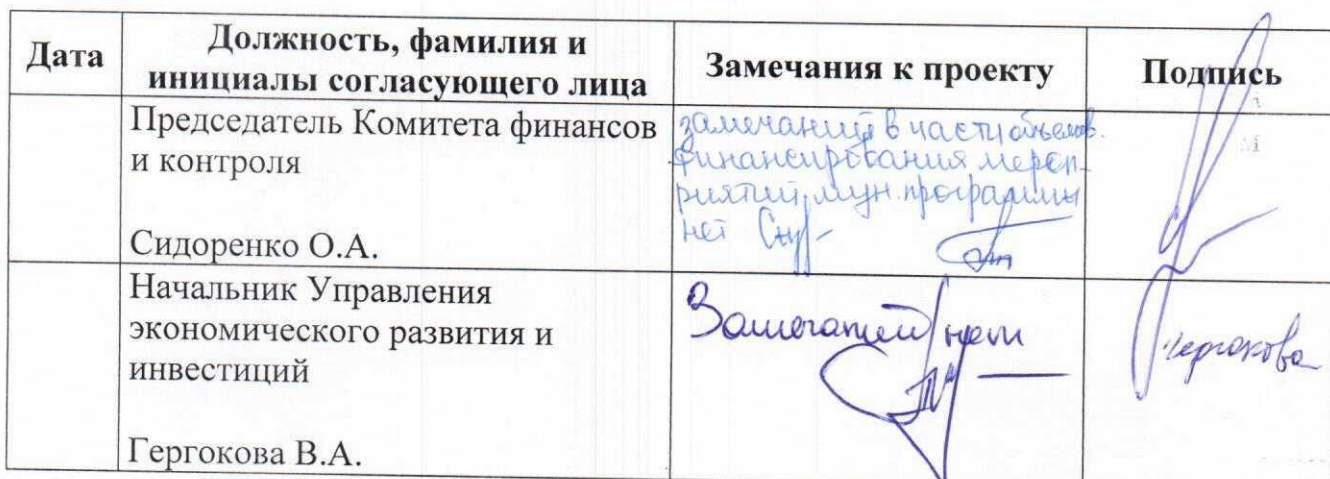 Дата
Должность, фамилия и
инициалы согласующего лица
Замечания к проекту
Подпись
Председатель Комитета финансов
и контроля
Сидоренко О.А.
замечаний в части объемов
финансирования мероп-
риятий мун. программы
нет
Начальник Управления
экономического развития и
инвестиций
Гергокова В.А.
Замечаний нет
Гергокова